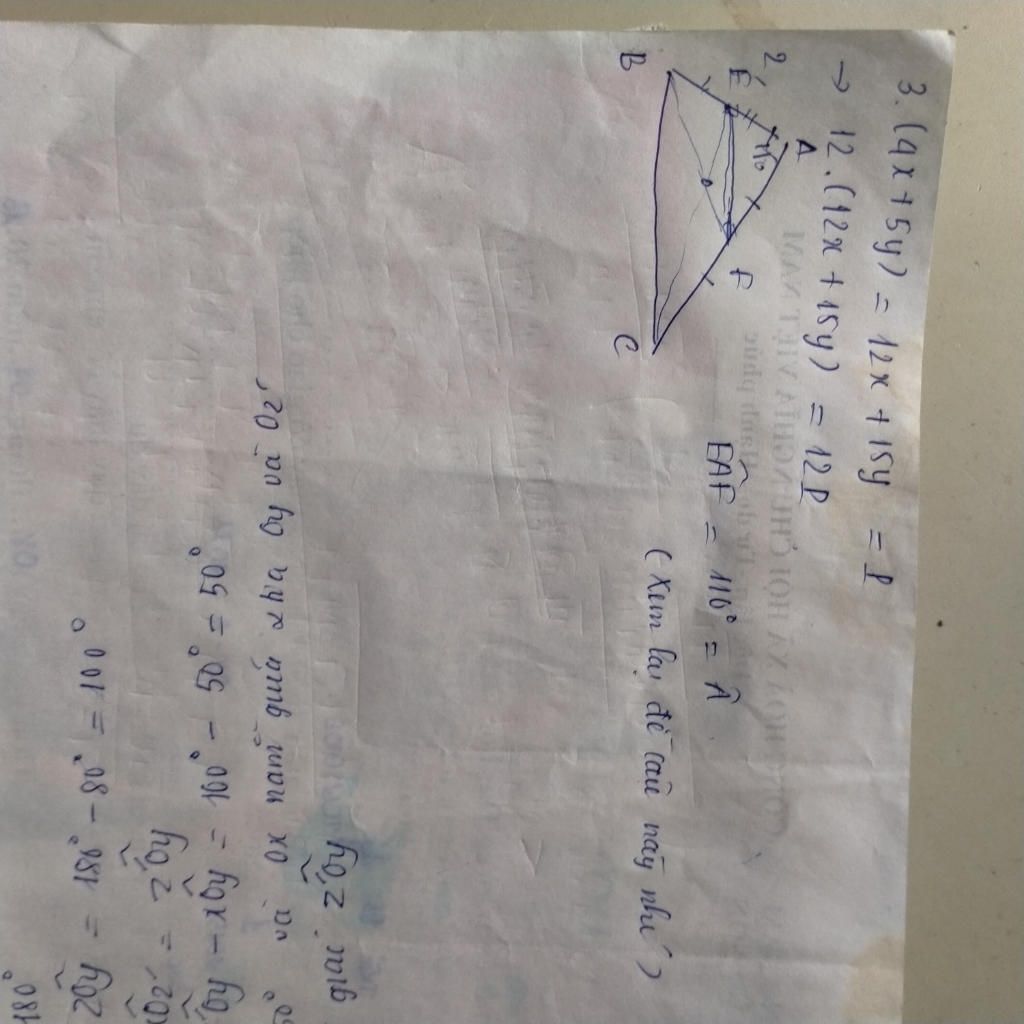 3.(4x + 5y) = 12x + 15y = P
→ 12.(12x + 15y) = 12P
2,
A
116°
E
F
B
C
EÂF = 116° = Â
(Xem lại đề câu này nhé)
giác z'Ôy
và Ox nằm giữa Oy và Oz'
Ôy - xÔy = 100° - 50° = 50°
Oz' = z'Ôy
zÔy = 180° - 80° = 100°
180°